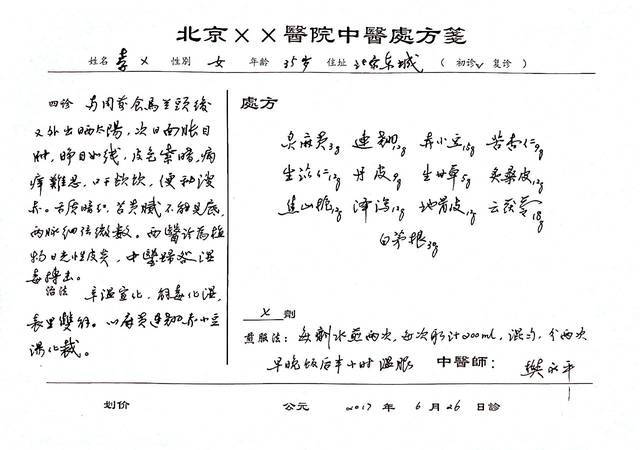 北京××醫院中醫處方箋
姓名 李× 性別 女 年齡 35岁 住址 北京东城 （初诊√ 复诊）
四诊 与闺蜜食馬兰頭後
又外出晒太陽，次日面胀目
肿，睁目如线，皮色紫暗，痛
痒難忍，口干欲饮，便秘溲
赤。舌质暗红，苔黄膩不能見底，
两脉细弦微数。西醫診為植
物日光性皮炎，中醫歸咎濕
毒搏击。
治法 辛温宣化，解毒化湿，
表里雙解。以麻黄连翘赤小豆
湯化裁。
處方
炙麻黄3g 連翹12g 赤小豆15g 苦杏仁9g
生苡仁12g 丹皮9g 生甘草5g 炙桑皮12g
焦山梔12g 澤瀉12g 地骨皮12g 云茯苓18g
白茅根30g
劑
煎服法：每劑水煎两次，每次取汁200ml，混匀，分两次
早晚饭后半小时温服 中醫師：樊永平
划价 公元 2017 年 6 月 26 日診